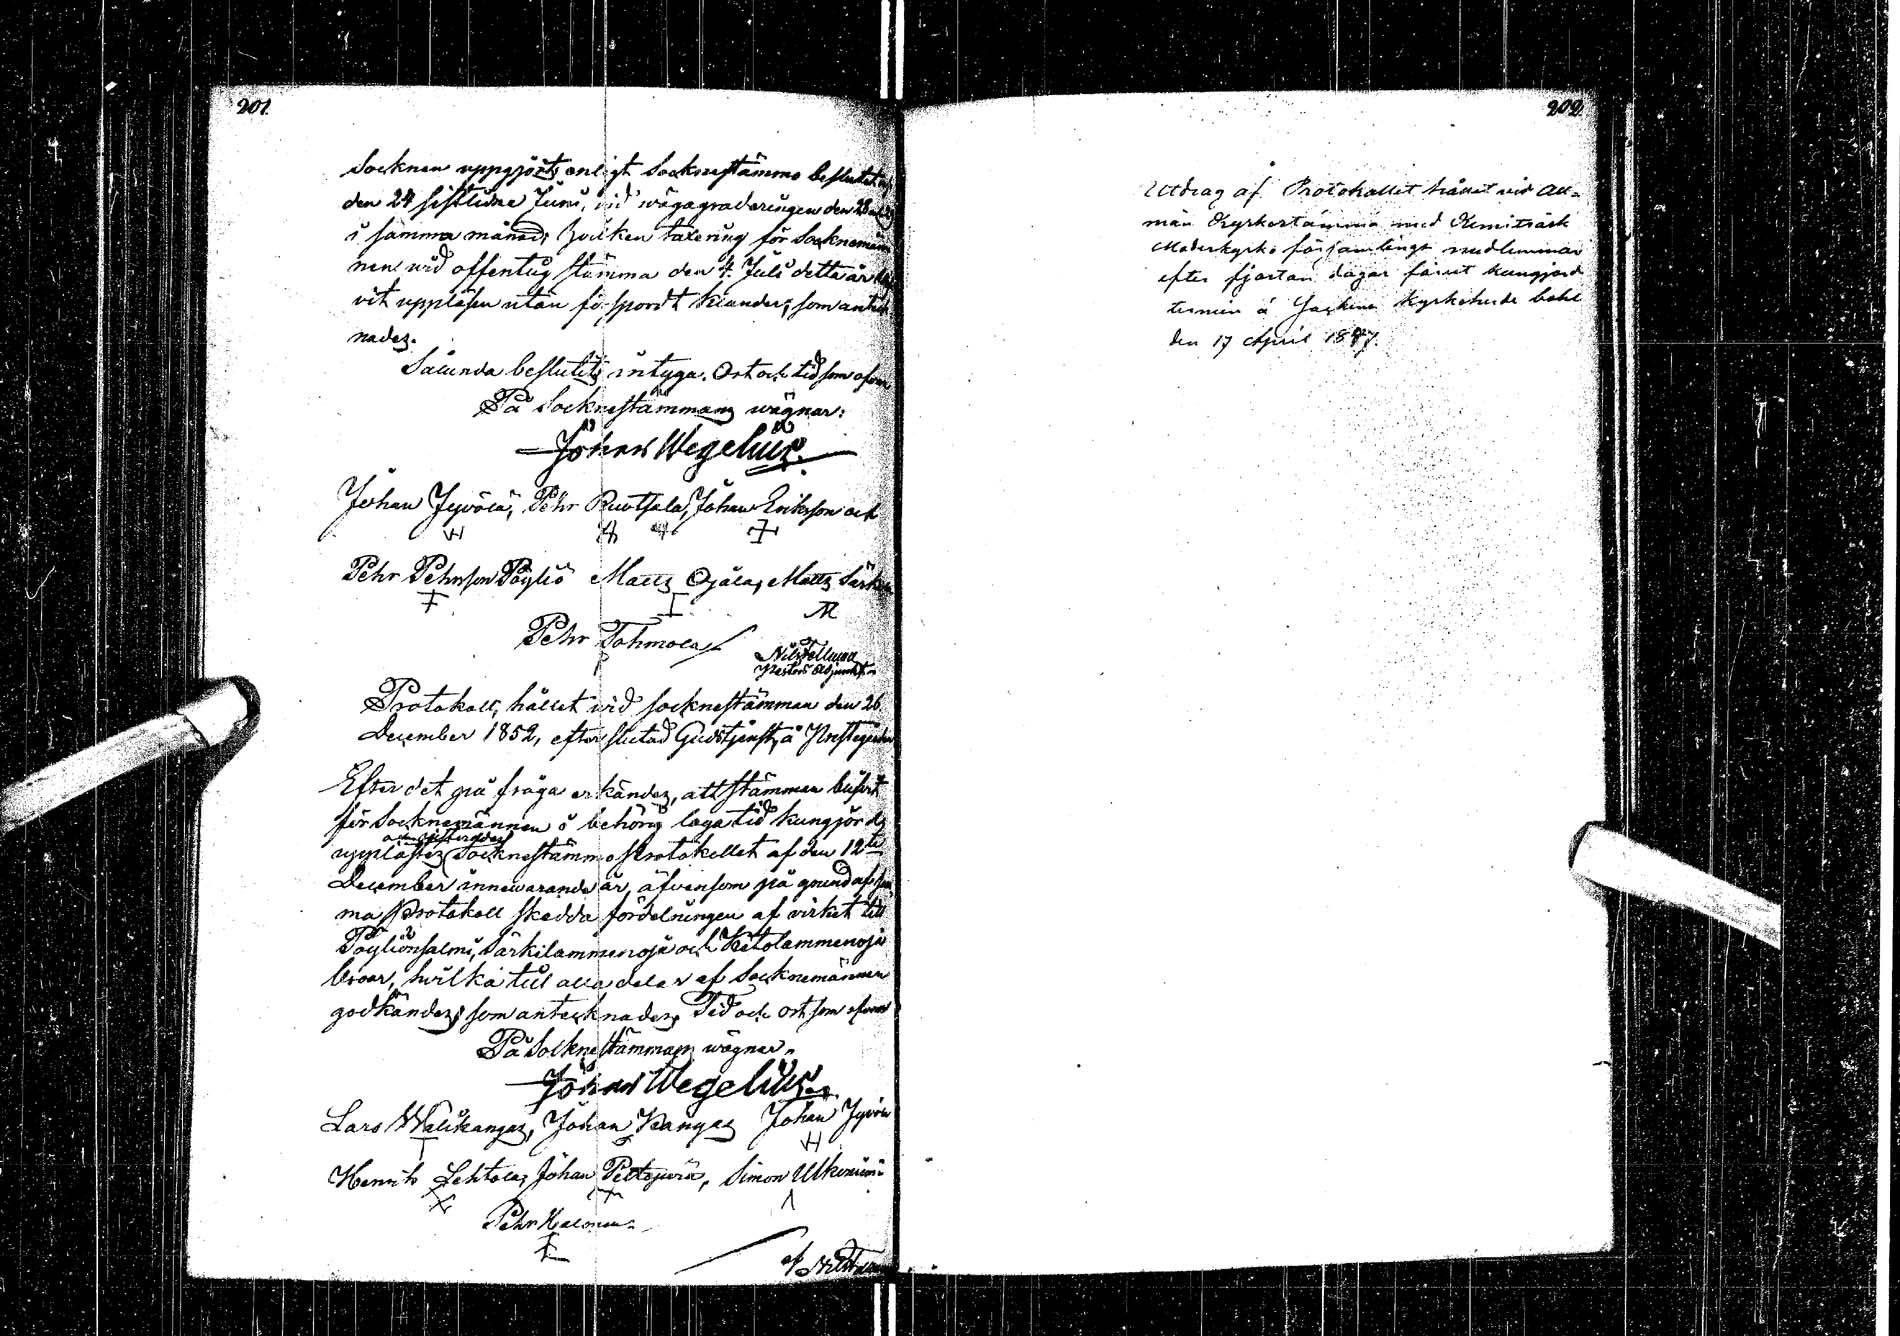 201.
Socknen uppgjorts enligt Socknestämmo beslutet af
den 24 sistlidne Juni, vid wägagraderingen den 28
i samma månad; hvilken taxering för Socknemän
nen vid offentlig stämma den 4. Juli detta år
vit uppläsen utan förspordt klander; som anteck
nades.
Sålunda beslutit, intyga. Ort och tid som ofvan
På Socknestämmans wägnar:
Johan Wegelius.
Johan Jyvölä, Pehr Ruotsala, Johan Eriksson och
Pehr Pehrsson Pöyliö Matts Ojala, Matts Särki
Pehr Tohmola
Nils Fellman
Pastors Adjunkt.
Protokoll, hållet vid socknestämman den 26.
December 1852, efter slutad Gudstjenst, å
Efter det på fråga erkändes, att stämman blifvit
för Socknemännen i behörig laga tid kungjord,
upplästes Socknestämmo Protokollet af den 12te
December innewarande år, äfvensom på grund af sam
ma Protokoll skedda fördelningen af virket till
Pöyliönsalmi, Särkilammenoja och Ketolammenoja
broar, hvilka till alla delar af Socknemännen
godkändes, som antecknades. Tid och ort som ofvan
På Socknestämmans wägnar.
Johan Wegelius.
Lars Walikangas, Johan Kangas Johan Jyvölä
Henrik Lehtola, Johan Peltoperä, Simon Ulkuniemi
Pehr Halonen
202.
Utdrag af Protokollet hållet vid All-
män Kyrkostämma med Kemiträsk
Moderkyrko församlings medlemmar
efter fjorton dagar förut kungjord
termin i Sockne kyrkohuset
den 17 April 1887.